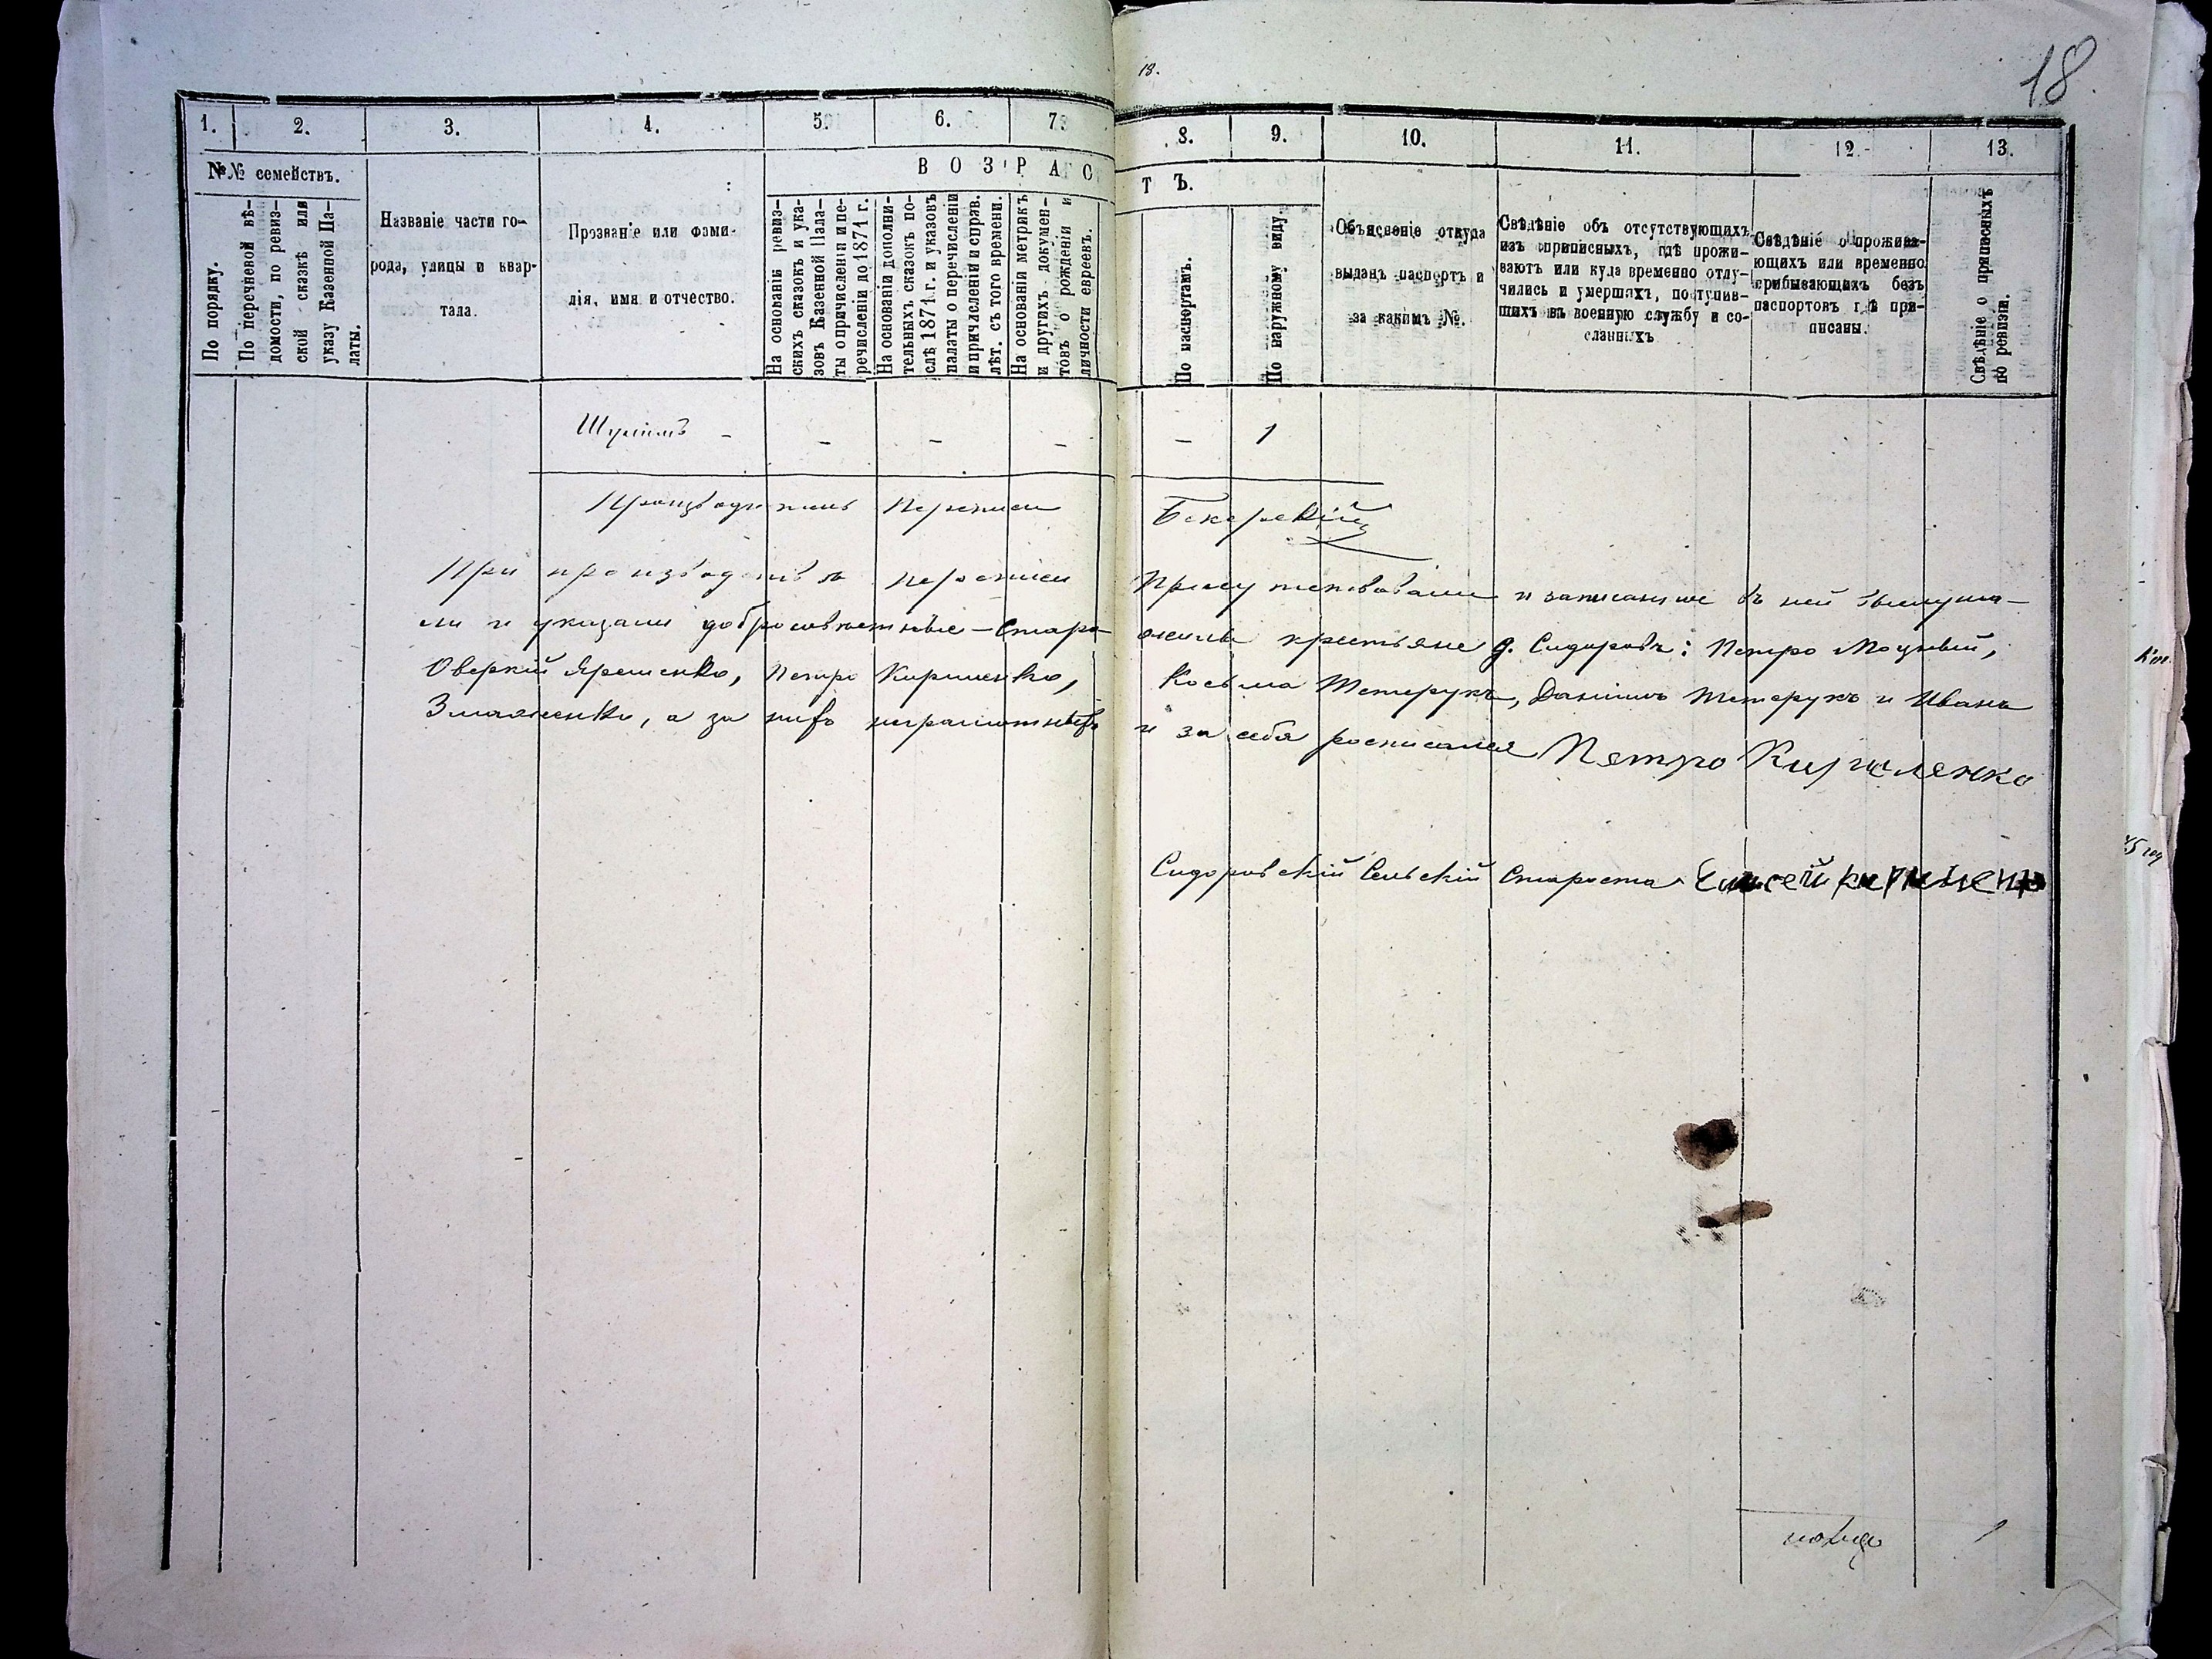 18.
18.
1. 2. 3. 4. 5. 6. 7. 8. 9. 10. 11. 12. 13.
№№ семействъ.
В О З Р А С Т Ъ.
По порядку.
По перечневой вѣ-
домости, по ревиз-
ской сказкѣ или
указу Казенной Па-
латы.
Названіе части го-
рода, улицы и квар-
тала.
Прозваніе или фами-
лія, имя и отчество.
На основаніи ревиз-
скихъ сказокъ и ука-
зовъ Казенной Пала-
ты о причисленіи и пе-
речисленіи до 1871 г.
На основаніи дополни-
тельныхъ сказокъ по-
слѣ 1871 г. и указовъ
палаты о перечисленіи
и причисленіи и справ.
лѣт. съ того времени.
На основаніи метрикъ
и другихъ докумен-
товъ о рожденіи и
личности евреевъ.
По паспортамъ.
По наружному виду.
Объясненіе откуда
выданъ паспортъ и
за какимъ №.
Свѣдѣніе объ отсутствующихъ
изъ приписныхъ, гдѣ прожи-
ваютъ или куда временно отлу-
чились и умершихъ, поступив-
шихъ въ военную службу и со-
сланныхъ
Свѣдѣніе о прожива-
ющихъ или временно
прибывающихъ безъ
паспортовъ гдѣ при-
писаны.
Свѣдѣніе о приписныхъ
по ревизіи.
- - - - - 1
Производитель переписи
При производствѣ переписи присутствовали и записанные въ ней выслуша-
ли и указали добросовѣстные - старожилы крестьяне д. Сидоровъ: Петро Моцный,
Оверкій Ярешенко, Петро Киришенко, Косьма Тетерукъ, Даніилъ Тетерукъ и Иванъ
а за нихъ неграмотныхъ и за себя росписался Петро
Сидоровскій Сельскій Староста Елисей
1